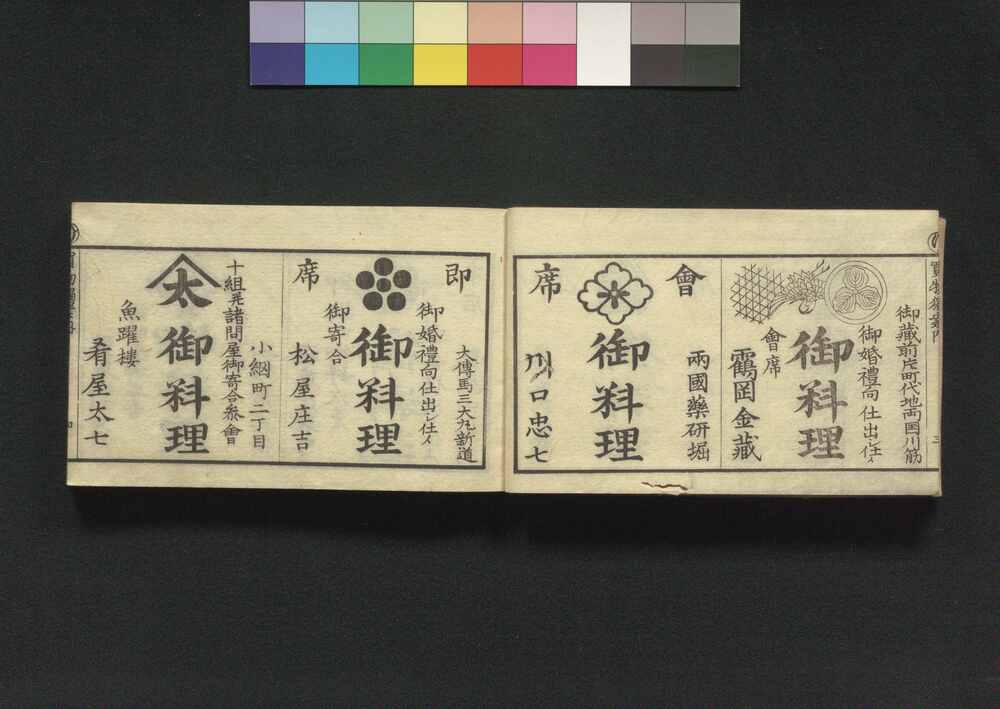 御蔵前片町代地両国川筋
御婚禮向仕出し仕イ
御料理
會席
鶴岡金藏
會席
兩國藥研堀
御料理
川口忠七
即席
大傳馬三大丸新道
御婚禮向仕出し仕イ
御料理
御寄合
松屋庄吉
小網町二丁目
十組其諸問屋御寄合參會
太
御料理
魚躍樓
肴屋太七